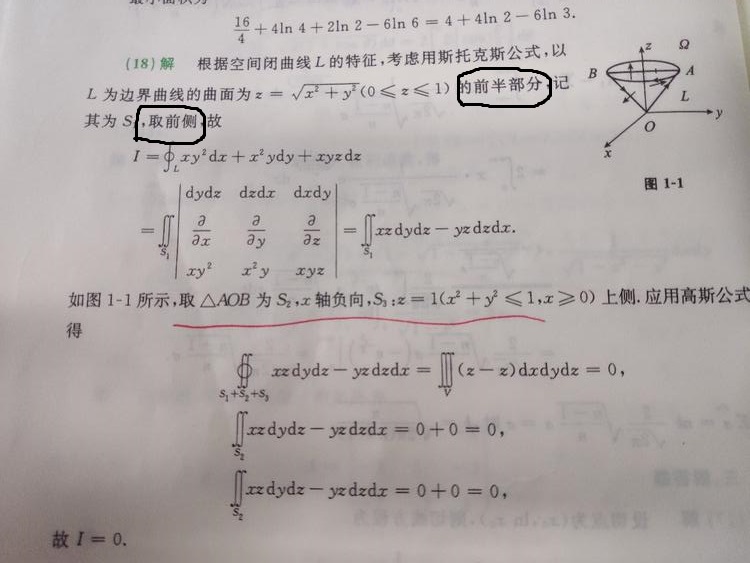 16/4 + 4ln 4 + 2ln 2 − 6ln 6 = 4 + 4ln 2 − 6ln 3.
(18) 解 根据空间闭曲线 L 的特征,考虑用斯托克斯公式,以
L 为边界曲线的曲面为 z = √(x² + y²) (0 ≤ z ≤ 1) 的前半部分,记
其为 S₁,取前侧,故
I = ∮_L xy²dx + x²ydy + xyzdz
= ∬_S₁ | dydz dzdx dxdy |
| ∂/∂x ∂/∂y ∂/∂z |
| xy² x²y xyz | = ∬_S₁ xzdydz − yzdzdx.
z
Ω
B
A
L
O
y
x
图 1-1
如图 1-1 所示,取 △AOB 为 S₂,x 轴负向,S₃:z = 1(x² + y² ≤ 1,x ≥ 0) 上侧.应用高斯公式
得
∯_{S₁+S₂+S₃} xzdydz − yzdzdx = ∭_V (z − z)dxdydz = 0,
∬_S₂ xzdydz − yzdzdx = 0 + 0 = 0,
∬_S₂ xzdydz − yzdzdx = 0 + 0 = 0,
故 I = 0.